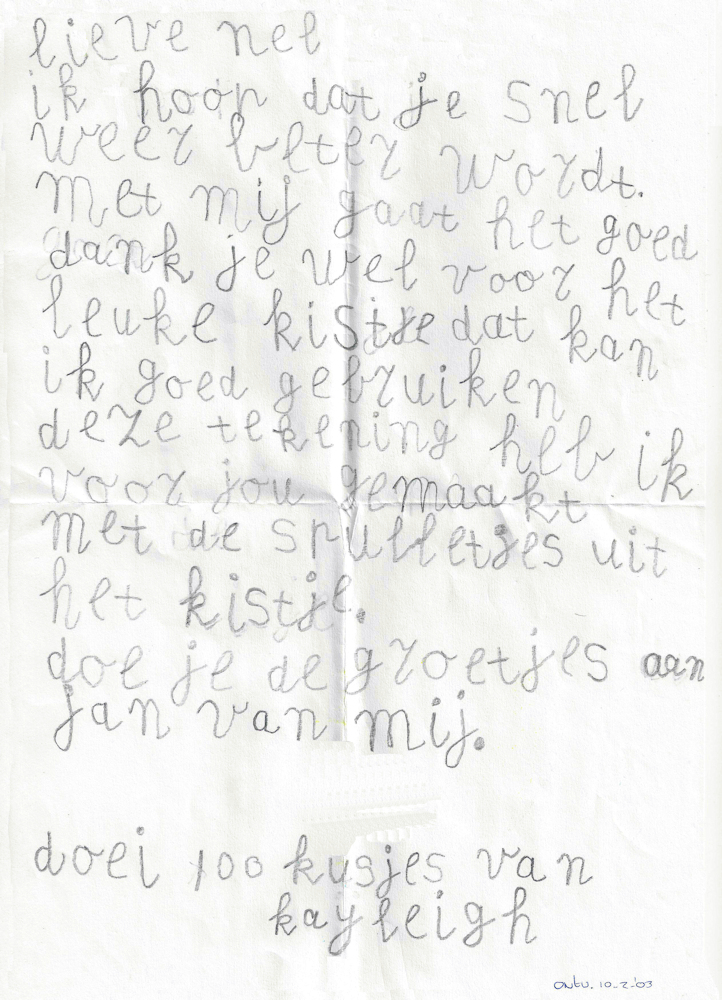 lieve nel
ik hoop dat je snel
weer beter wordt.
met mij gaat het goed
dank je wel voor het
leuke kistje dat kan
ik goed gebruiken
deze tekening heb ik
voor jou gemaakt
met de spulletjes uit
het kistje.
doe je de groetjes aan
jan van mij.
doei 100 kusjes van
kayleigh
ontv. 10-2-'03